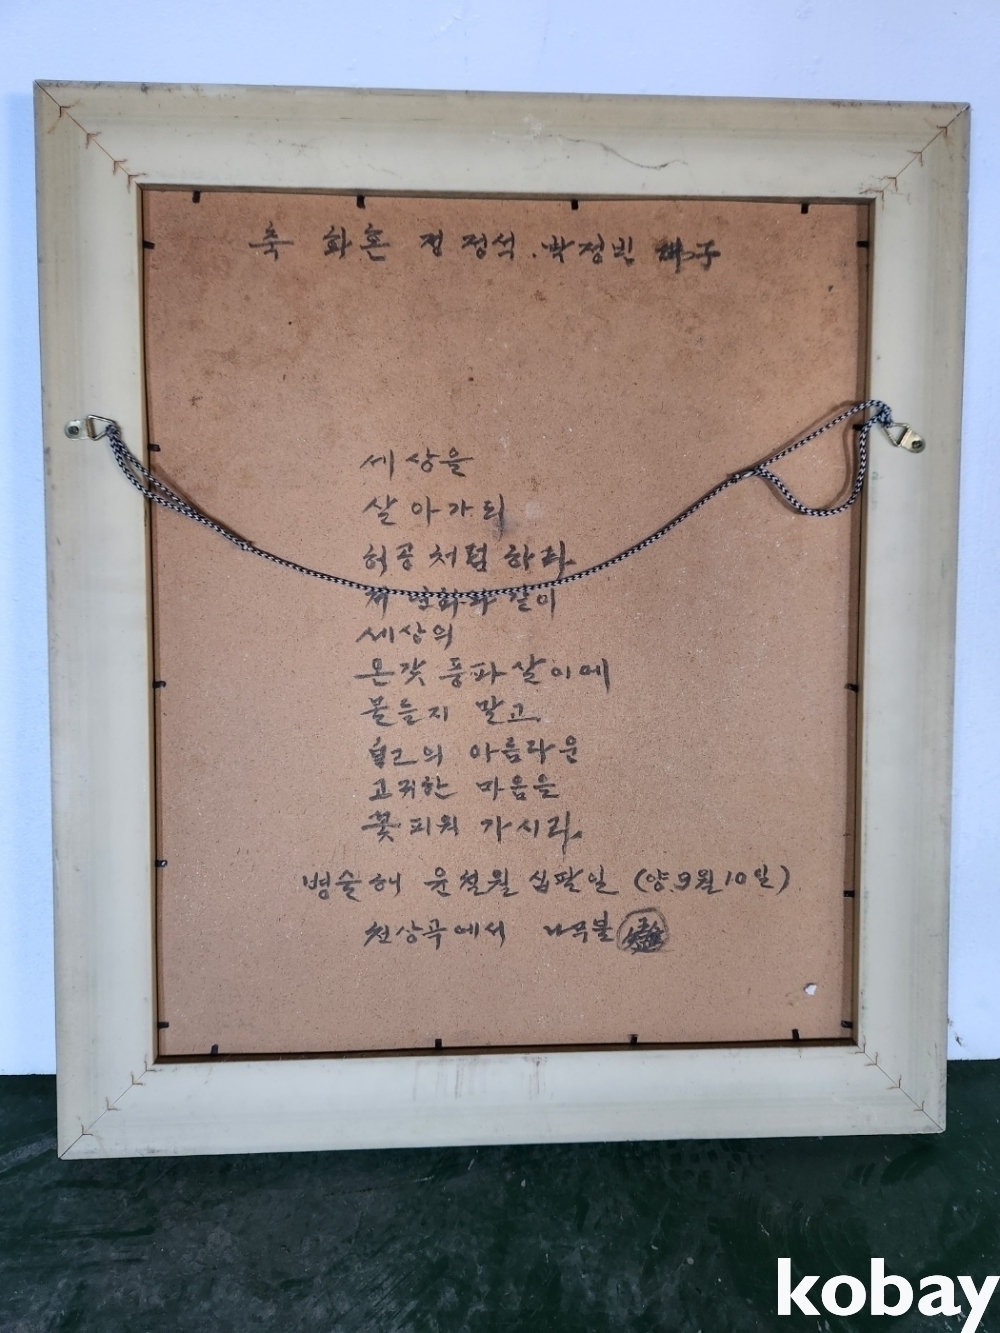 축 화혼 정정석·박정빈 佛子
세상을
살아가되
허공처럼 하라
저 연화와 같이
세상의
온갖 풍파살이에
물들지 말고
自己의 아름다운
고귀한 마음을
꽃피워 가시라
병술해 윤칠월 십팔일 (양9월10일)
천상곡에서 나무불
kobay